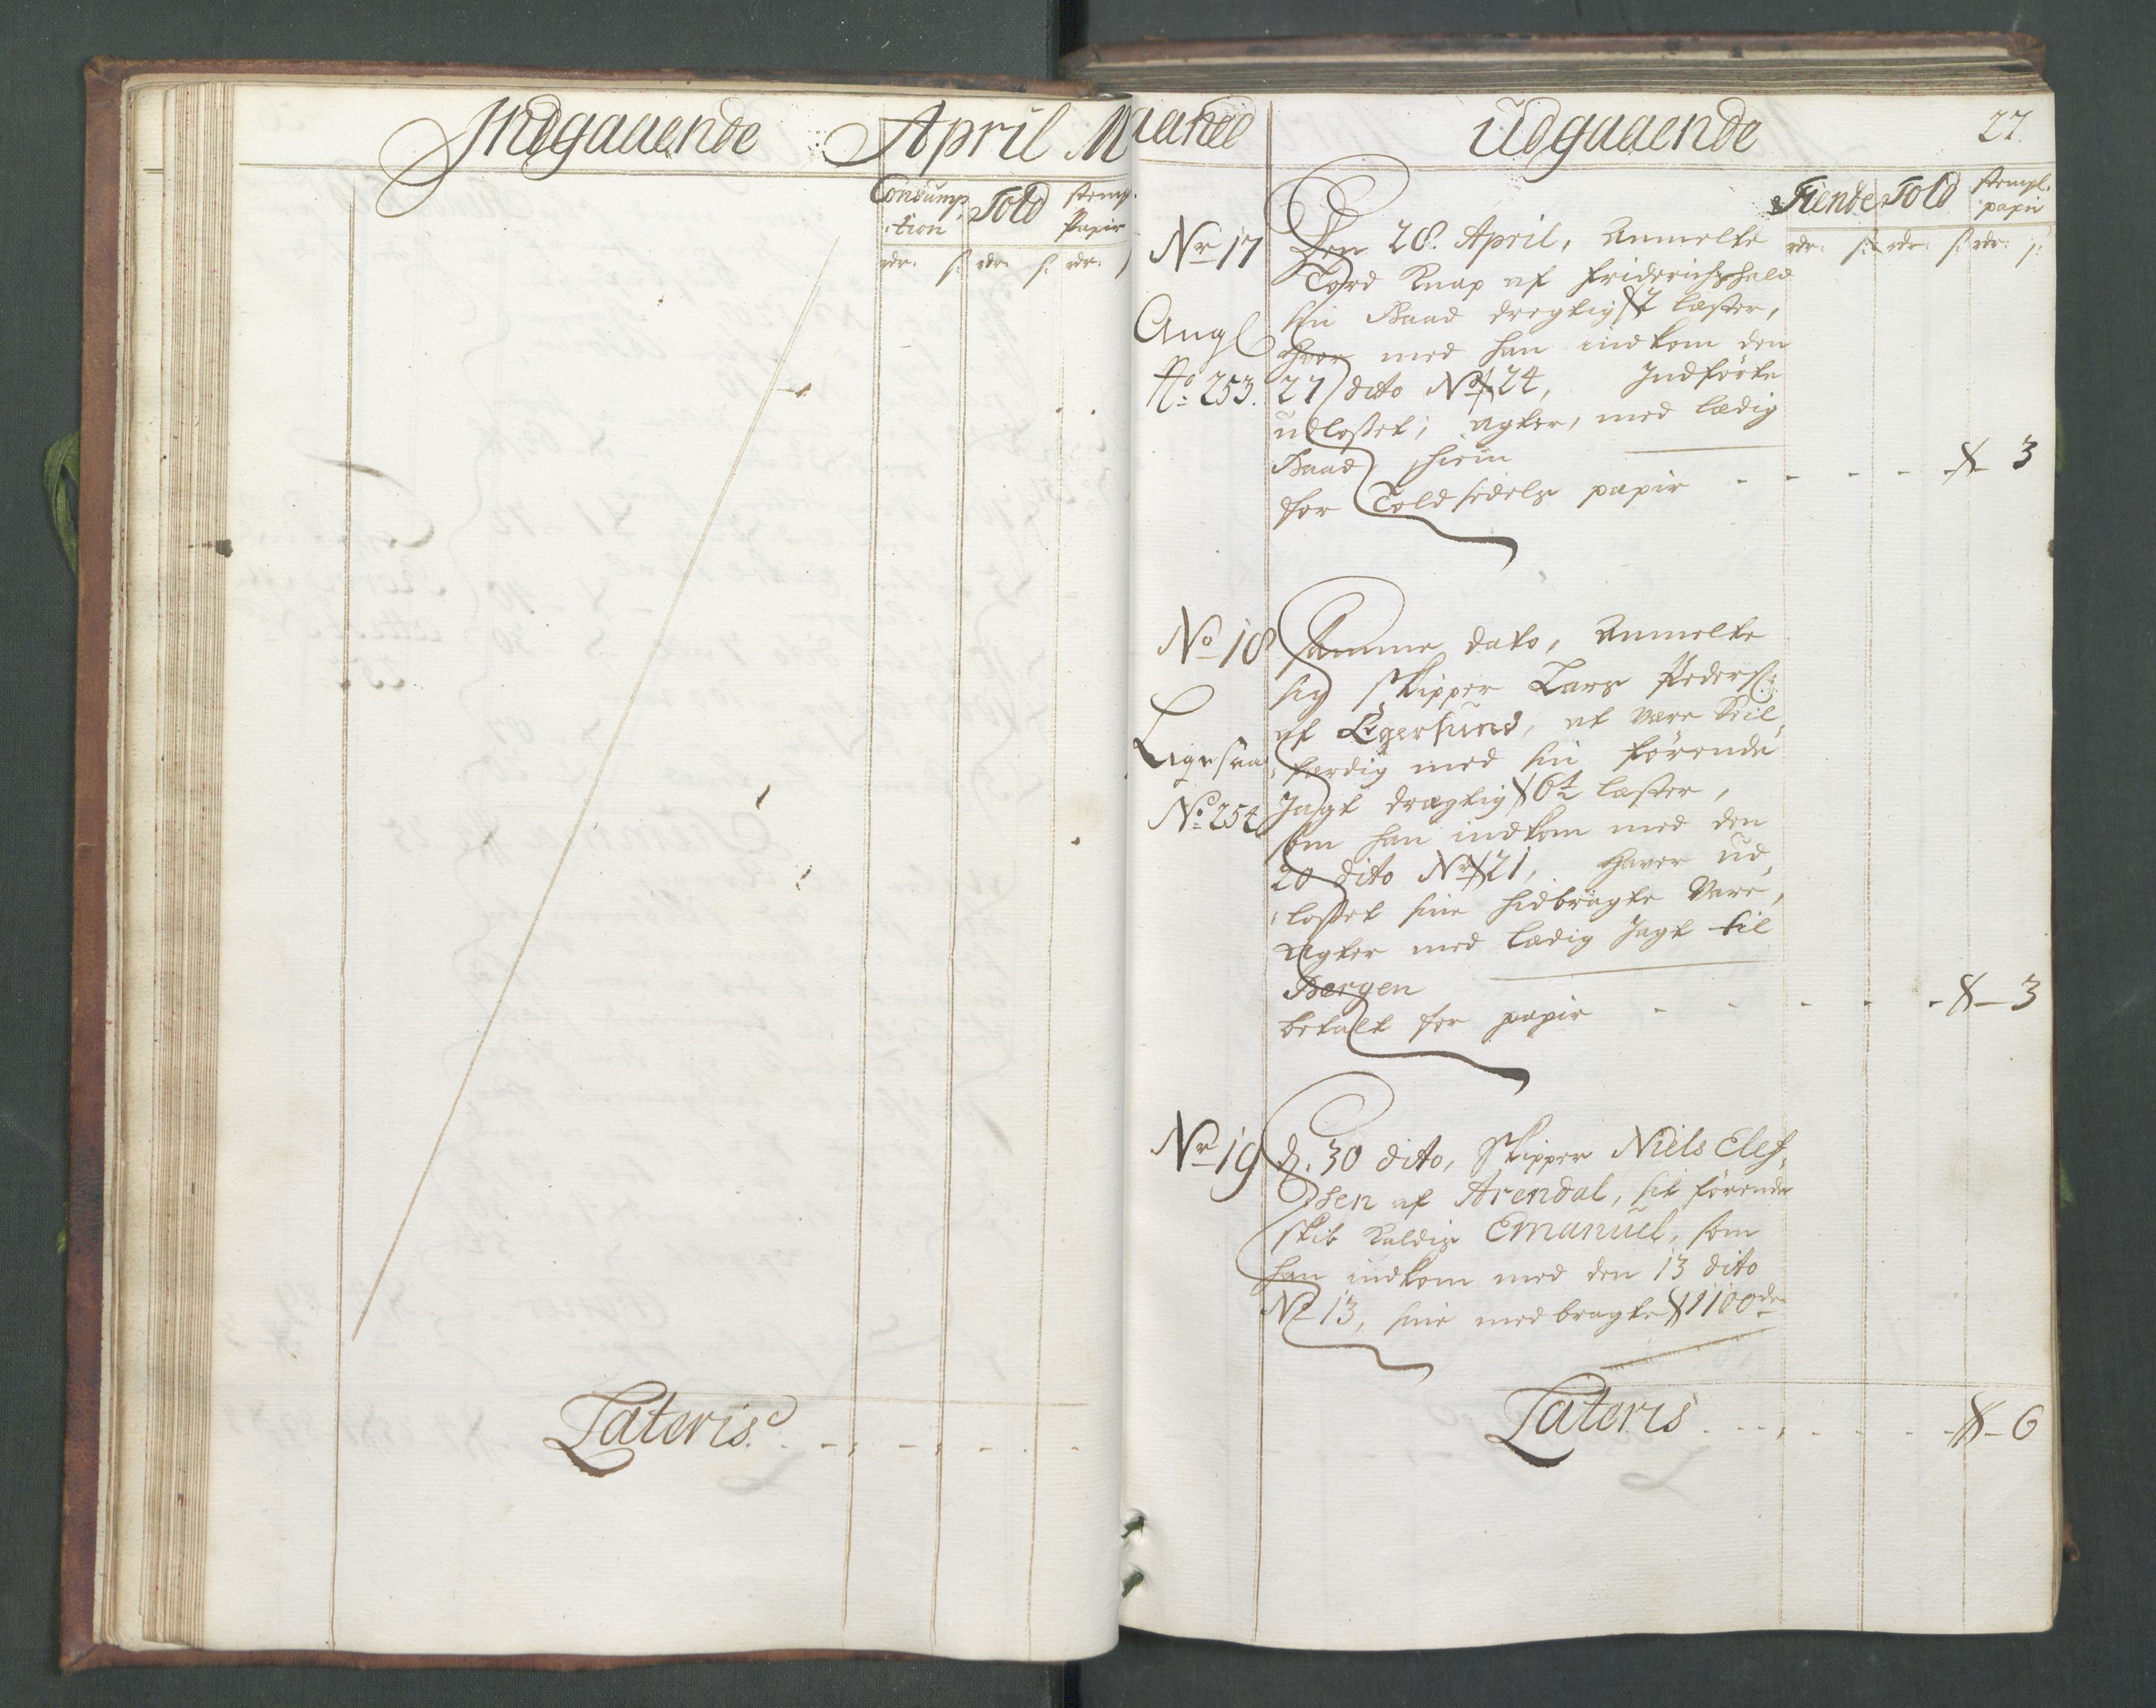 Indgaaende April Maaned
Consump-
tion
Told
stempl.
Papir
rdr: s: rdr: s: rdr:
Lateris
Udgaaende
27.
Tiende Told
stempl.
papir
rdr: s: rdr: s: rdr: s:
Nr 17
Den 28. April, Anmelte
Tord Knap af Friderichshald
sin Baad dregtig 7 læster,
Angl
hvor med han indkom den
No 253.
27 dito No 24, Indførte
udlosset; agter, med lædig
Baad hiem
for Toldsedels papir - - - - - 3
No 18
Samme dato, Anmelte
sig Skipper Lars Peders:
af Egersund, at være Seil,
Ligesaa
færdig med sin førende
No 254
Jagt drægtig 6½ læster,
som han indkom med den
20 dito Nr 21, haver ud,
losset sine hidbragte Vare,
Agter med lædig Jagt til
Bergen
betalt for papir - - - - - 3
Nr 19
d. 30 dito, Skipper Niels Elef,
sen af Arendal, sit førende
skib kaldis Emanuel, som
han indkom med den 13 dito
No 13, sine medbragte 1100 de
Lateris - - - - - 6